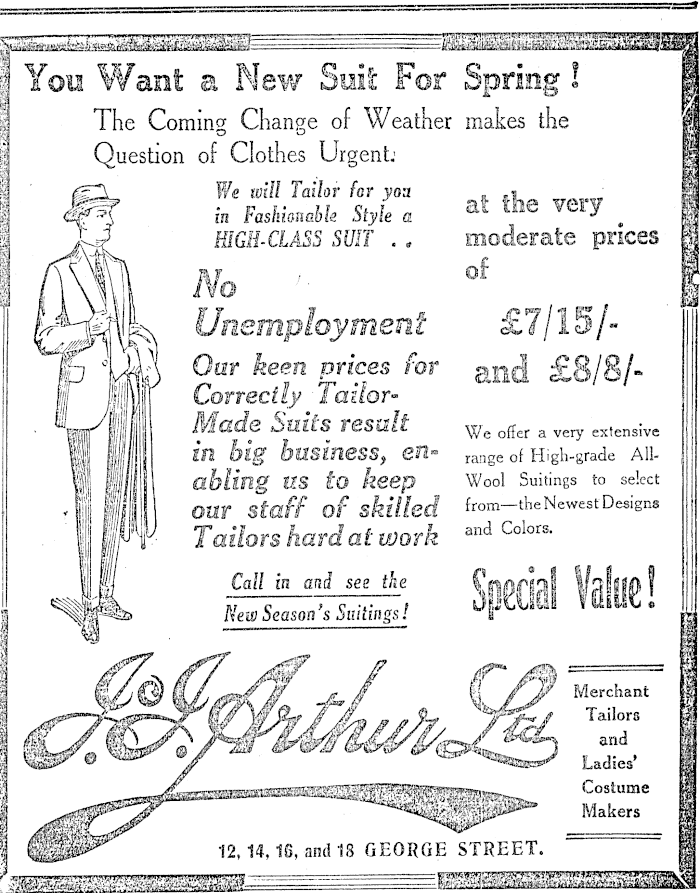 You Want a New Suit For Spring!
The Coming Change of Weather makes the
Question of Clothes Urgent.
We will Tailor for you
in Fashionable Style a
HIGH-CLASS SUIT . .
No
Unemployment
Our keen prices for
Correctly Tailor-
Made Suits result
in big business, en-
abling us to keep
our staff of skilled
Tailors hard at work
Call in and see the
New Season's Suitings!
at the very
moderate prices
of
£7/15/-
and £8/8/-
We offer a very extensive
range of High-grade All-
Wool Suitings to select
from—the Newest Designs
and Colors.
Special Value!
J. & J. Arthur Ltd
Merchant
Tailors
and
Ladies'
Costume
Makers
12, 14, 16, and 18 GEORGE STREET.